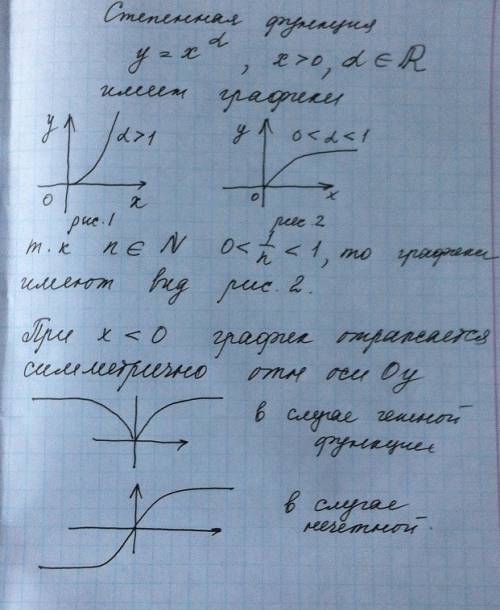 Степенная функция
y = x^α, x>0, α ∈ ℝ
имеет графики
y α>1 y 0<α<1
0 x 0 x
рис.1 рис.2
т.к n ∈ N 0 < 1/n < 1, то графики
имеют вид рис. 2.
При x < 0 график отражается
симметрично отн оси Oy
в случае четной
функции
в случае
нечетной.